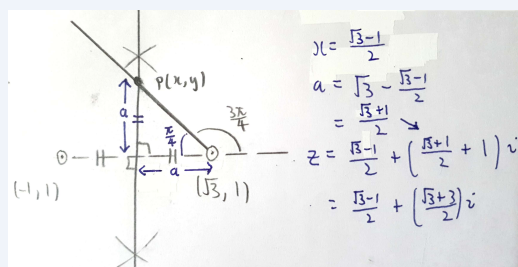 P(x,y)
a
π/4
3π/4
a
(-1, 1)
(√3, 1)
x = (√3-1)/2
a = √3 - (√3-1)/2
= (√3+1)/2
z = (√3-1)/2 + ((√3+1)/2 + 1) i
= (√3-1)/2 + ((√3+3)/2) i